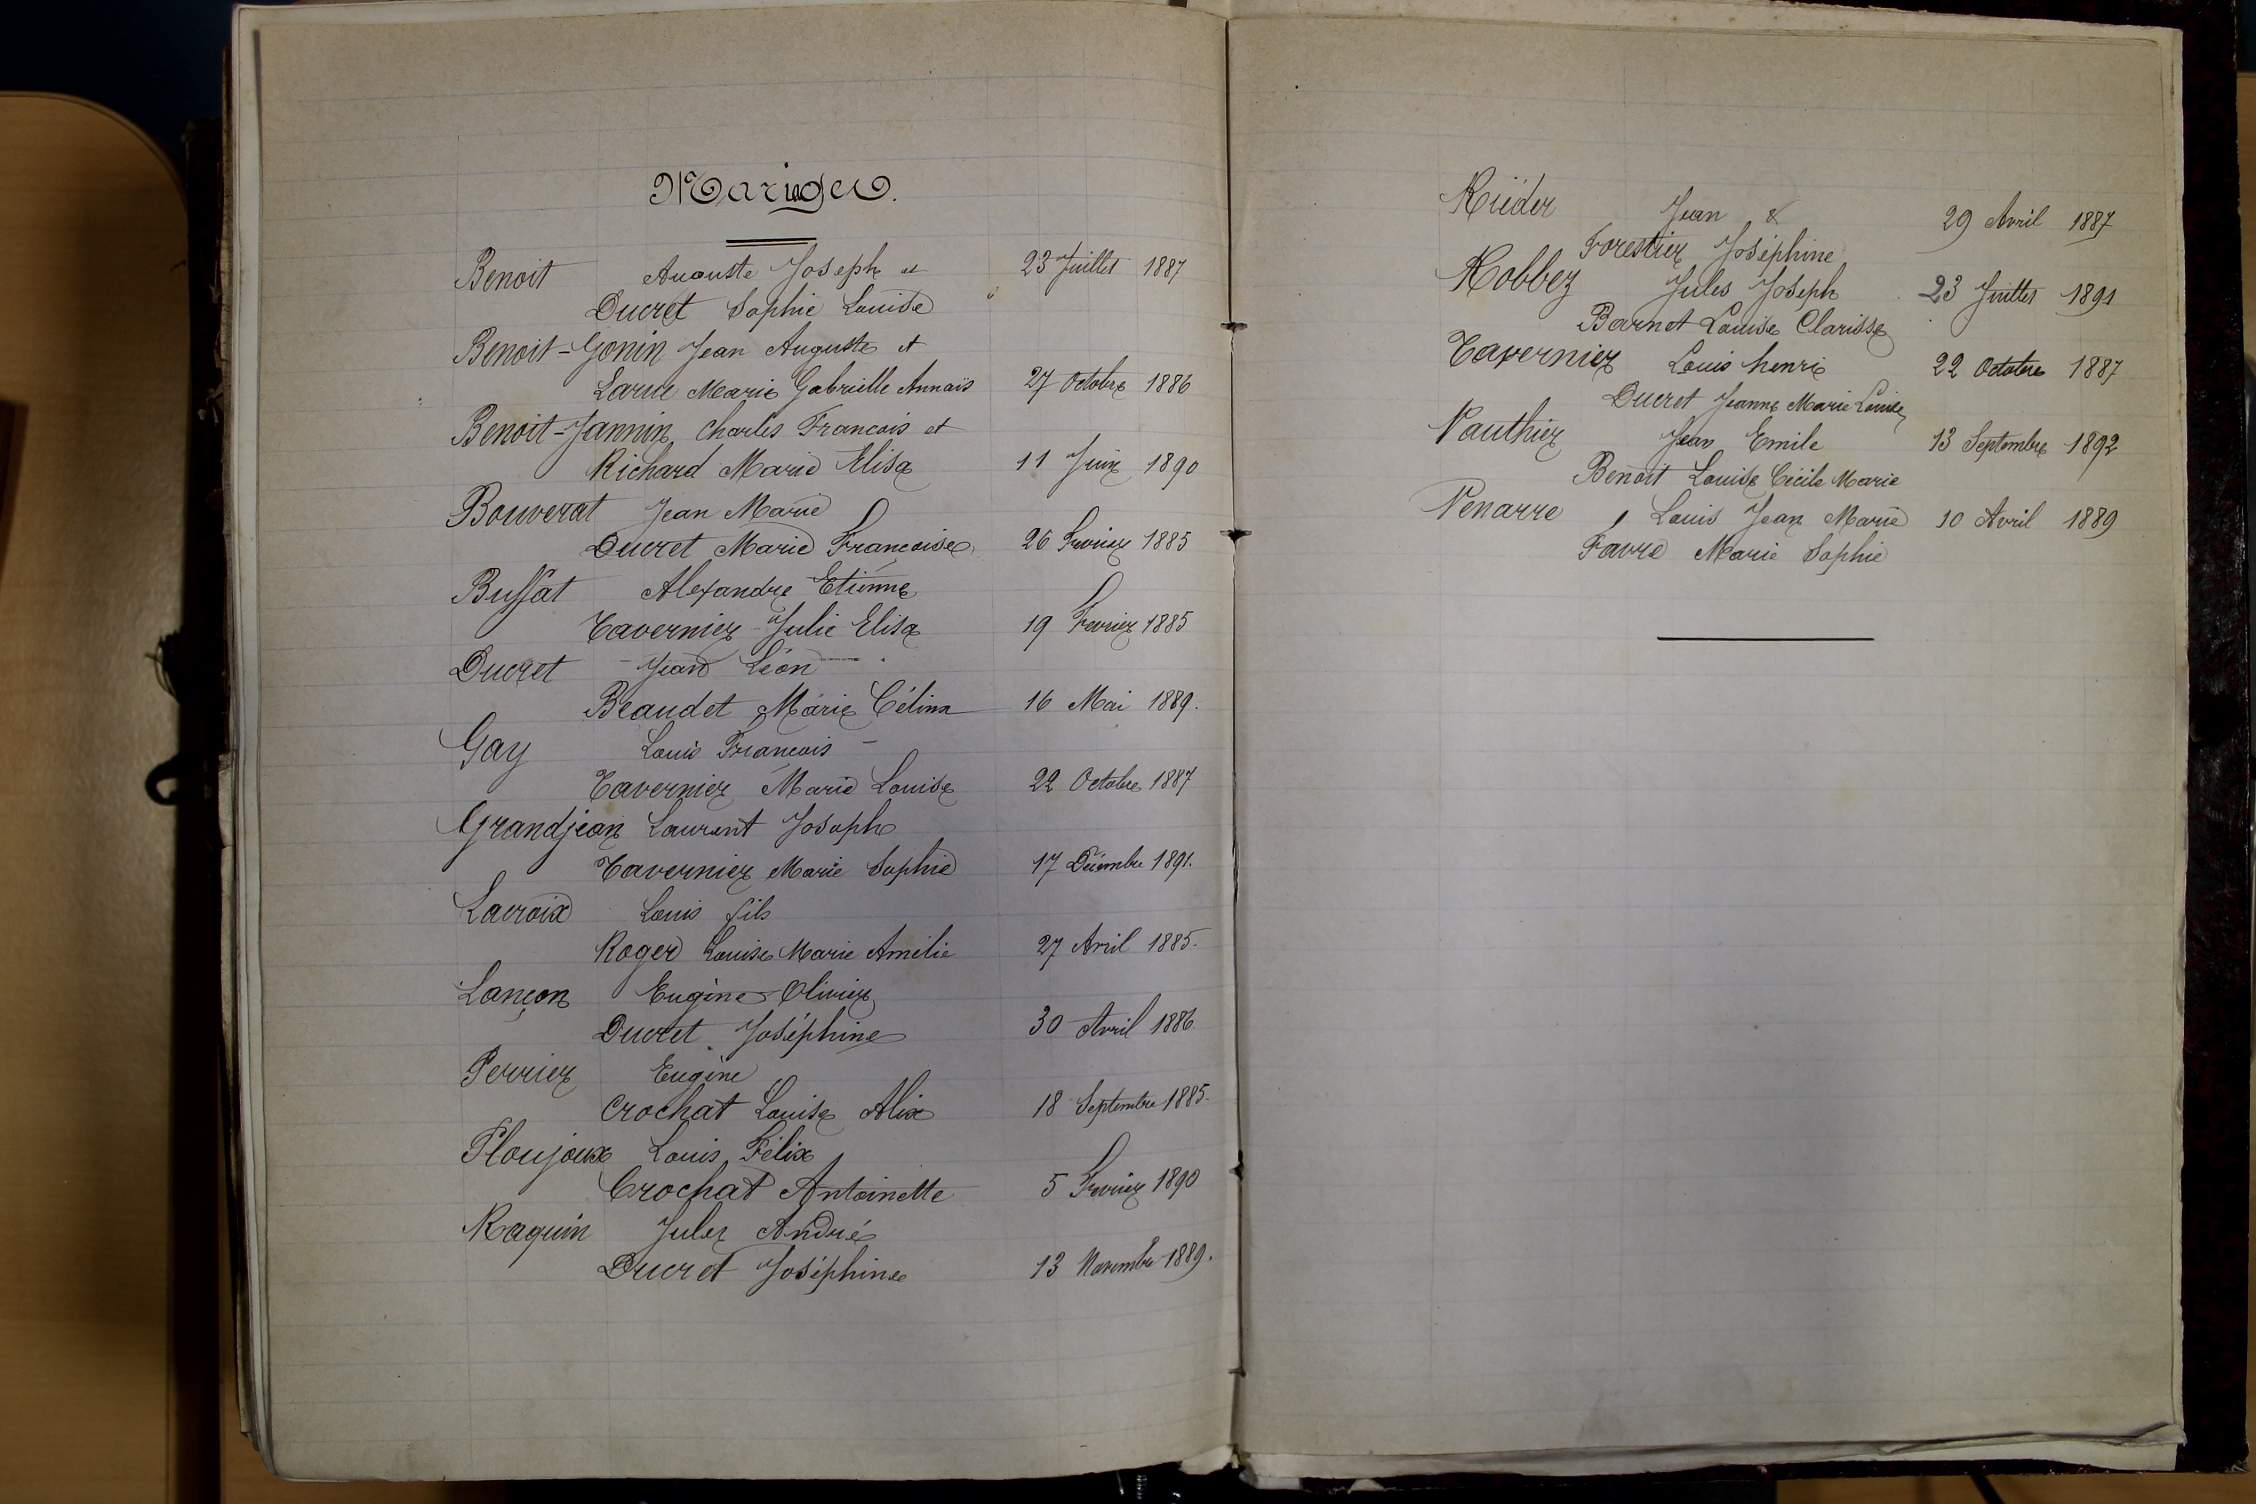 Mariages.
Benoit Auguste Joseph et 23 Juillet 1887
Ducret Sophie Louise
Benoit-Gonin Jean Auguste et
Larue Marie Gabrielle Annaïs 27 Octobre 1886
Benoit-Jannin Charles Francois et
Richard Marie Elisa 11 Juin 1890
Bouverat Jean Marie
Ducret Marie Francoise 26 Fevrier 1885
Buffat Alexandre Etienne
Tavernier Julie Elisa 19 Fevrier 1885
Ducret - Jean Léon -
Beaudet Marie Célina 16 Mai 1889.
Gay Louis Francois -
Tavernier Marie Louise 22 Octobre 1887
Grandjean Laurent Joseph
Tavernier Marie Sophie 17 Décembre 1891.
Lacroix Louis fils
Roger Louise Marie Amélie 27 Avril 1885.
Lançon Eugène Olivier
Ducret Joséphine 30 Avril 1886
Perrier Eugène
Crochat Louise Alix 18 Septembre 1885.
Ploujoux Louis Félix
Crochat Antoinette 5 Fevrier 1890
Raquin Jules André
Ducret Joséphine 13 Novembre 1889.
Rieder Jean & 29 Avril 1887
Forestier Joséphine
Robbez Jules Joseph 23 Juillet 1891
Barnet Louise Clarisse
Tavernier Louis henri 22 Octobre 1887
Ducret Jeanne Marie Louise
Vauthier Jean Emile 13 Septembre 1892
Benoit Louise Cécile Marie
Venarre Louis Jean Marie 10 Avril 1889
Favre Marie Sophie